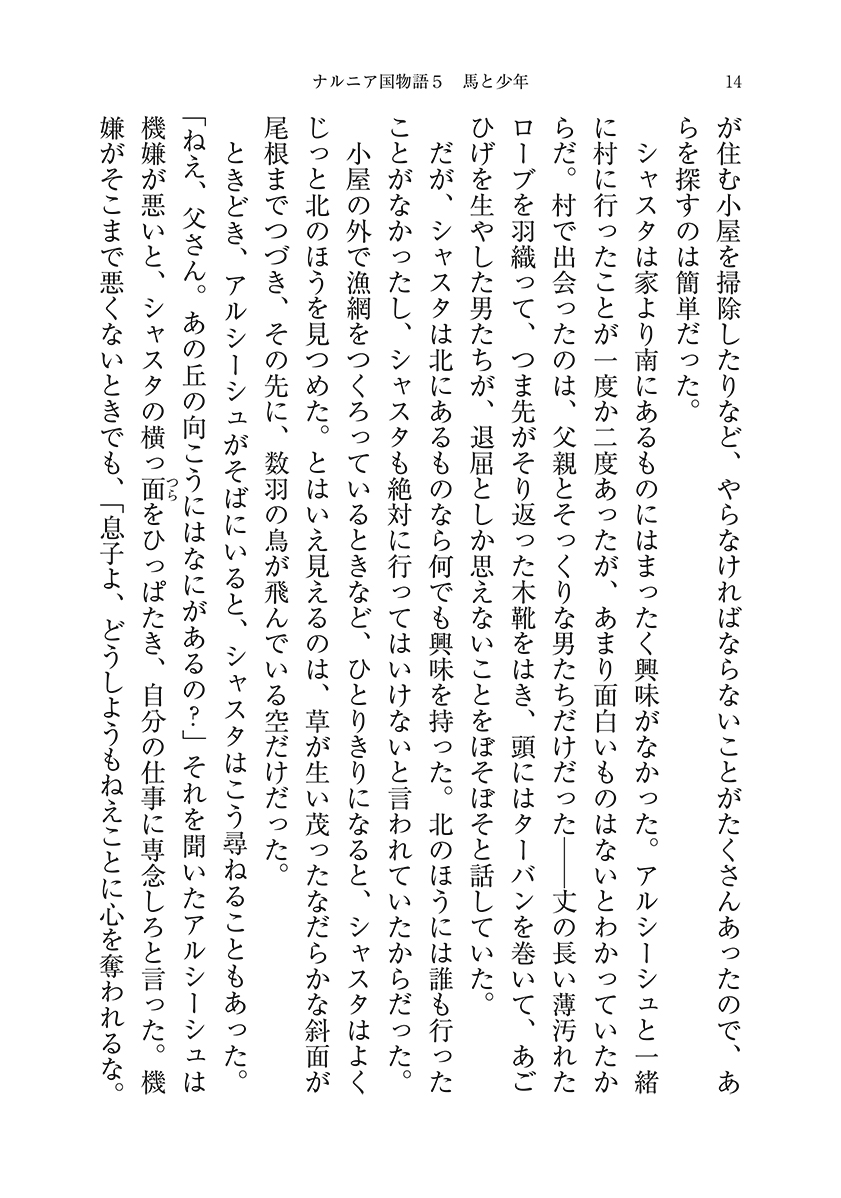 ナルニア国物語５　馬と少年
14
が住む小屋を掃除したりなど、やらなければならないことがたくさんあったので、あ
らを探すのは簡単だった。
　シャスタは家より南にあるものにはまったく興味がなかった。アルシーシュと一緒
に村に行ったことが一度か二度あったが、あまり面白いものはないとわかっていたか
らだ。村で出会ったのは、父親とそっくりな男たちだけだった――丈の長い薄汚れた
ローブを羽織って、つま先がそり返った木靴をはき、頭にはターバンを巻いて、あご
ひげを生やした男たちが、退屈としか思えないことをぼそぼそと話していた。
　だが、シャスタは北にあるものなら何でも興味を持った。北のほうには誰も行った
ことがなかったし、シャスタも絶対に行ってはいけないと言われていたからだった。
　小屋の外で漁網をつくろっているときなど、ひとりきりになると、シャスタはよく
じっと北のほうを見つめた。とはいえ見えるのは、草が生い茂ったなだらかな斜面が
尾根までつづき、その先に、数羽の鳥が飛んでいる空だけだった。
　ときどき、アルシーシュがそばにいると、シャスタはこう尋ねることもあった。
「ねえ、父さん。あの丘の向こうにはなにがあるの？」それを聞いたアルシーシュは
機嫌が悪いと、シャスタの横っ面つらをひっぱたき、自分の仕事に専念しろと言った。機
嫌がそこまで悪くないときでも、「息子よ、どうしようもねえことに心を奪われるな。